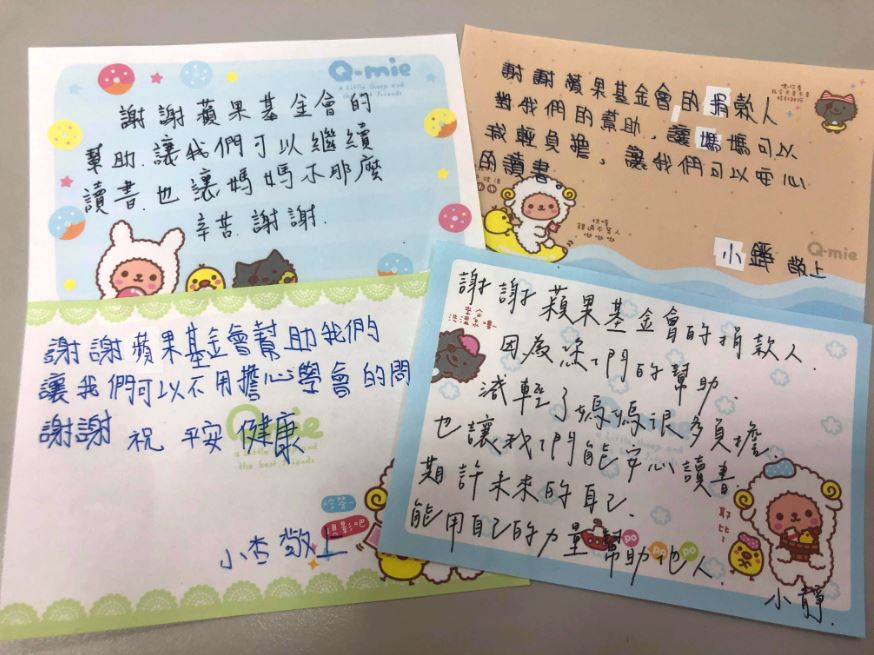 Q-mie
謝謝蘋果基金會的
幫助.讓我們可以繼續
讀書.也讓媽媽不那麼
辛苦.謝謝.
謝謝蘋果基金會的捐款人
對我們的幫助，讓媽媽可以
我輕負擔，讓我們可以安心
的讀書。
小 敬上
Q-mie
謝謝蘋果基金會幫助我們
讓我們可以不用擔心學會的問
謝謝 祝 平安 健康
Q-mie
a little Sheep and
the best friends
小杏 敬上
謝謝蘋果基金會的捐款人.
因為您們的幫助.
減輕了媽媽很多負擔.
也讓我們能安心讀書.
期許未來的自己.
能用自己的力量幫助他人.
小靜.